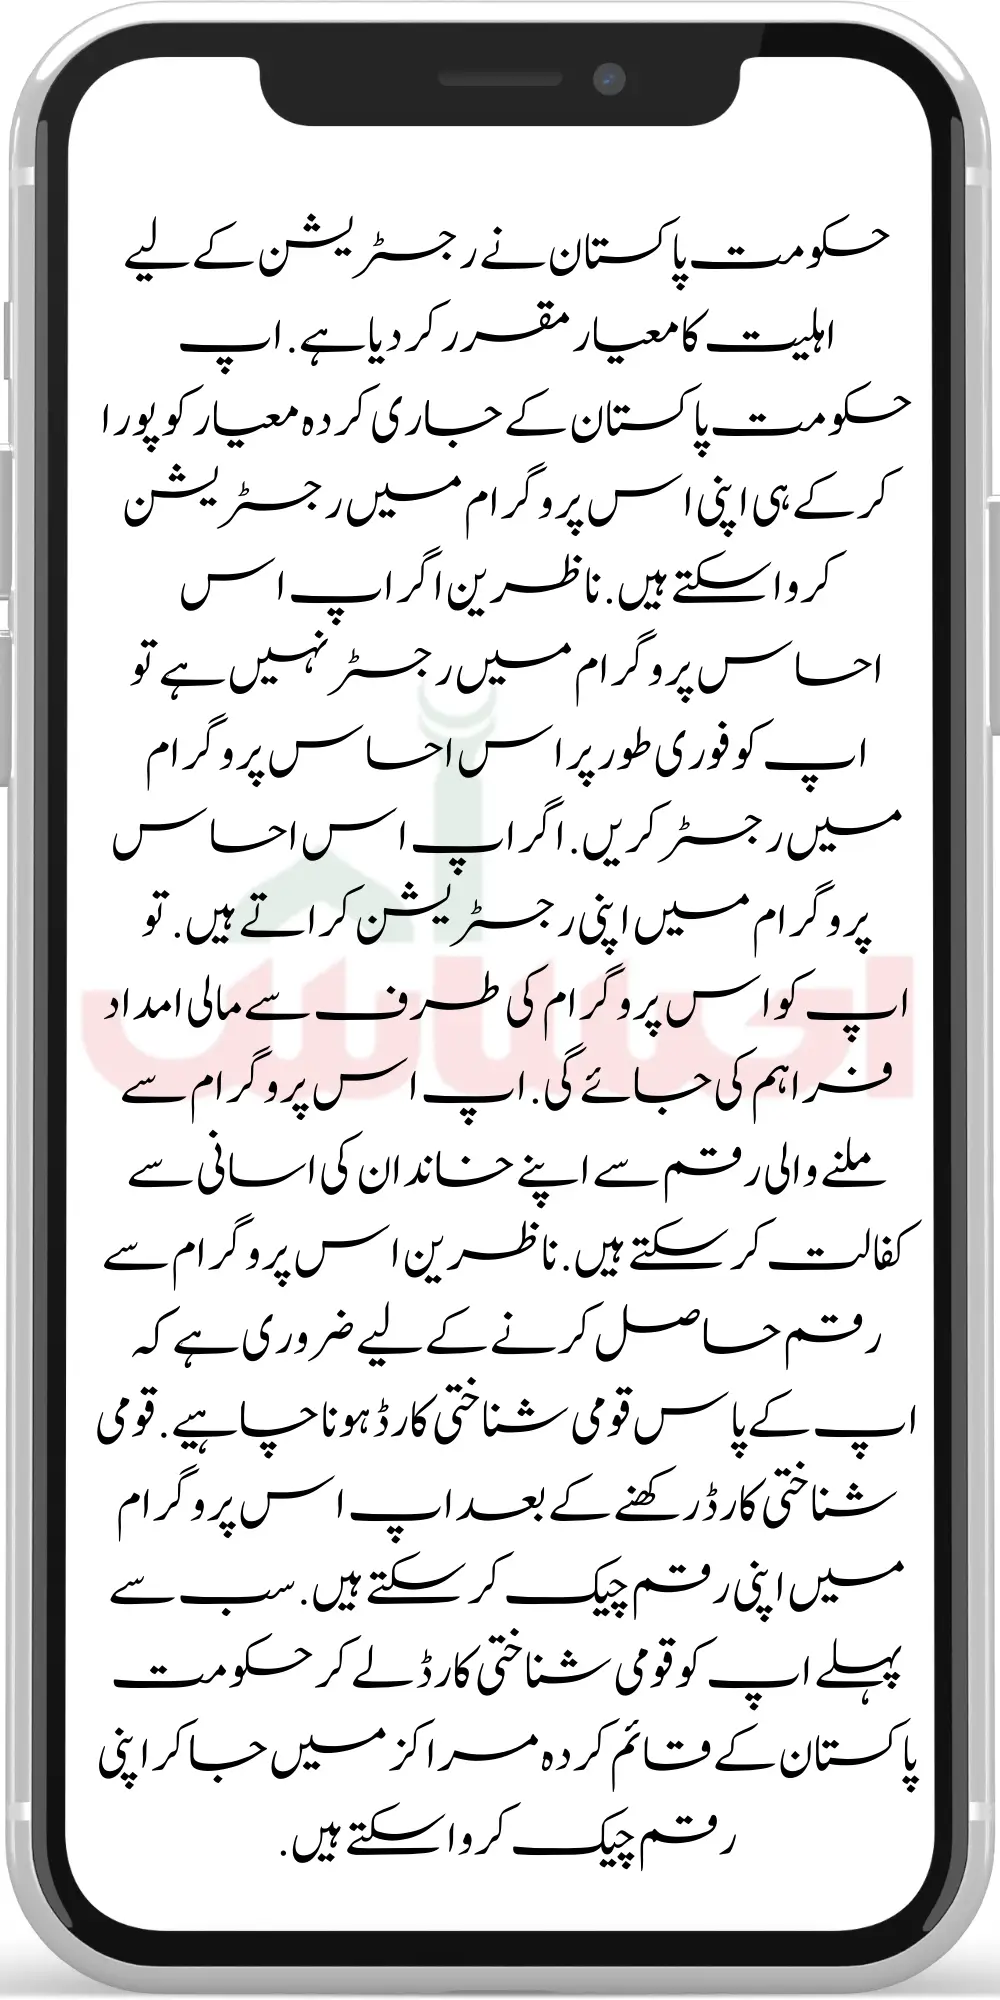 حکومت پاکستان نے رجسٹریشن کے لیے
اہلیت کا معیار مقرر کر دیا ہے. اپ
حکومت پاکستان کے جاری کردہ معیار کو پورا
کر کے ہی اپنی اس پروگرام میں رجسٹریشن
کروا سکتے ہیں. ناظرین اگر اپ اس
احساس پروگرام میں رجسٹر نہیں ہے تو
اپ کو فوری طور پر اس احساس پروگرام
میں رجسٹر کریں. اگر اپ اس احساس
پروگرام میں اپنی رجسٹریشن کراتے ہیں. تو
اپ کو اس پروگرام کی طرف سے مالی امداد
فراہم کی جائے گی. اپ اس پروگرام سے
ملنے والی رقم سے اپنے خاندان کی اسانی سے
کفالت کر سکتے ہیں. ناظرین اس پروگرام سے
رقم حاصل کرنے کے لیے ضروری ہے کہ
اپ کے پاس قومی شناختی کارڈ ہونا چاہیے. قومی
شناختی کارڈ رکھنے کے بعد اپ اس پروگرام
میں اپنی رقم چیک کر سکتے ہیں. سب سے
پہلے اپ کو قومی شناختی کارڈ لے کر حکومت
پاکستان کے قائم کردہ مراکز میں جا کر اپنی
رقم چیک کروا سکتے ہیں.
احساس